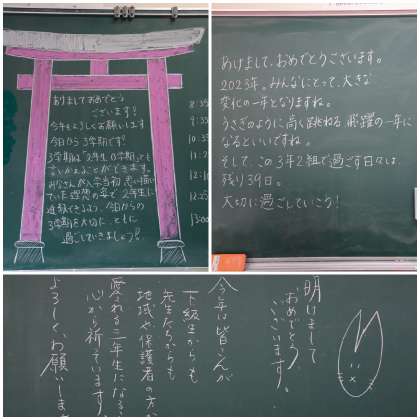 あけましておめでとう
ございます!
今年もよろしくお願いします
今日から3学期です!
3学期は「2年生の0学期」とも
言いかえることができます。
みなさんが入学当初 思い描い
ていた理想の姿で2年生に
進級できるよう、今日からの
3学期を大切に、ともに
過ごしていきましょう!
8:35
あけまして、おめでとうございます。
2023年。みんなにとって、大きな
変化の一年となりますね。
うさぎのように高く跳ねる 飛躍の一年に
なるといいですね。
そして、この3年2組で過ごす日々は、
残り39日。
大切に過ごしていこう!
明けまして
おめでとう
ございます。
今年は皆さんが
下級生からも
先生たちからも
地域や保護者の方
愛される三年生になる
心から祈っています
よろしくお願いしま